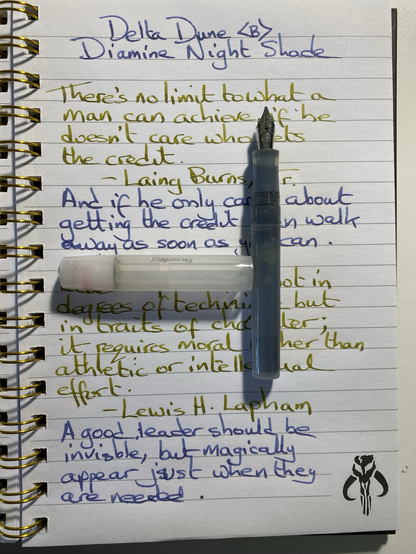 Delta Dune <B>
Diamine Night Shade
There's no limit to what a
man can achieve if he
doesn't care who
the credit.
- Laing Burns,
And if he only about
getting the credit walk
away as soon as can.
in
degrees of but
in traits of
it requires moral than
athletic or
effort.
- Lewis H. Lapham
A good leader should be
invisible, but magically
appear just when they
are needed.